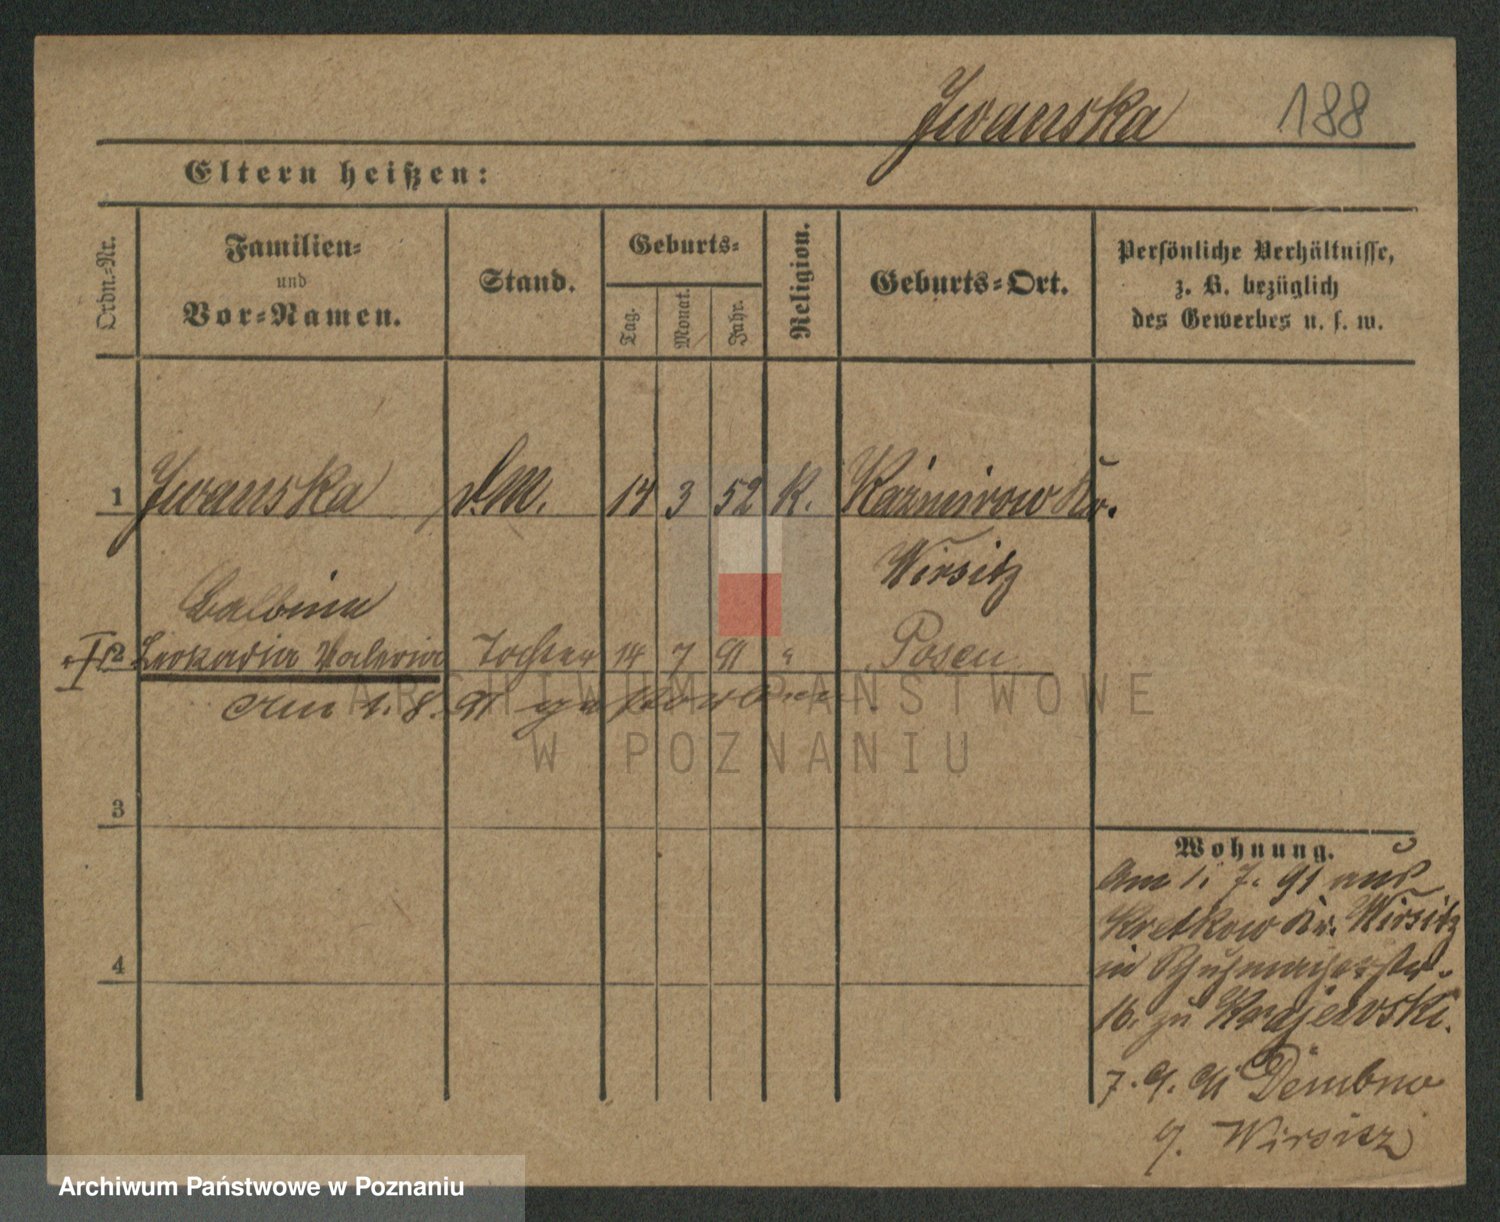 Iwanska 188
Eltern heißen:
Ordn.-Nr.
Familien-
und
Vor-Namen.
Stand.
Geburts-
Tag.
Monat.
Jahr.
Religion.
Geburts-Ort.
Persönliche Verhältnisse,
z. B. bezüglich
des Gewerbes u. s. w.
1 Iwanska d.M. 14 3 52 K. Kazmirow Kr.
Wirsitz
Balbina
2 Leokadia Valeria Tochter 14 7 91 " Posen
am 1. 8. 91 gestorben.
ARCHIWUM PAŃSTWOWE
W POZNANIU
3
4
Wohnung.
Am 1. 7. 91 aus
Kretkow Kr. Wirsitz
in Schuhmacherstr.
16. zu Krajewski.
7. 9. 91 Dembno
Wirsitz
Archiwum Państwowe w Poznaniu